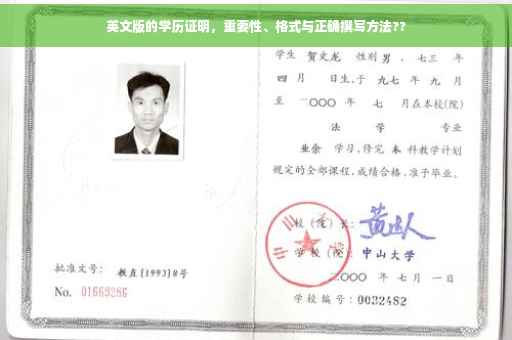 英文版的学历证明，重要性、格式与正确撰写方法??
学生 贺文龙 性别 男，七三 年
四 月 日生，于 九七 年 九 月
至 二〇〇〇 年 七 月在本校(院)
法 学 专业
业余 学习，修完 本 科教学计划
规定的全部课程，成绩合格，准予毕业。
校 (院) 长：
学 校 (院)： 中山大学
二〇〇〇 年 七 月 一 日
学校编号：0032482
批准文号： 教直[1993]8号
No. 01663286